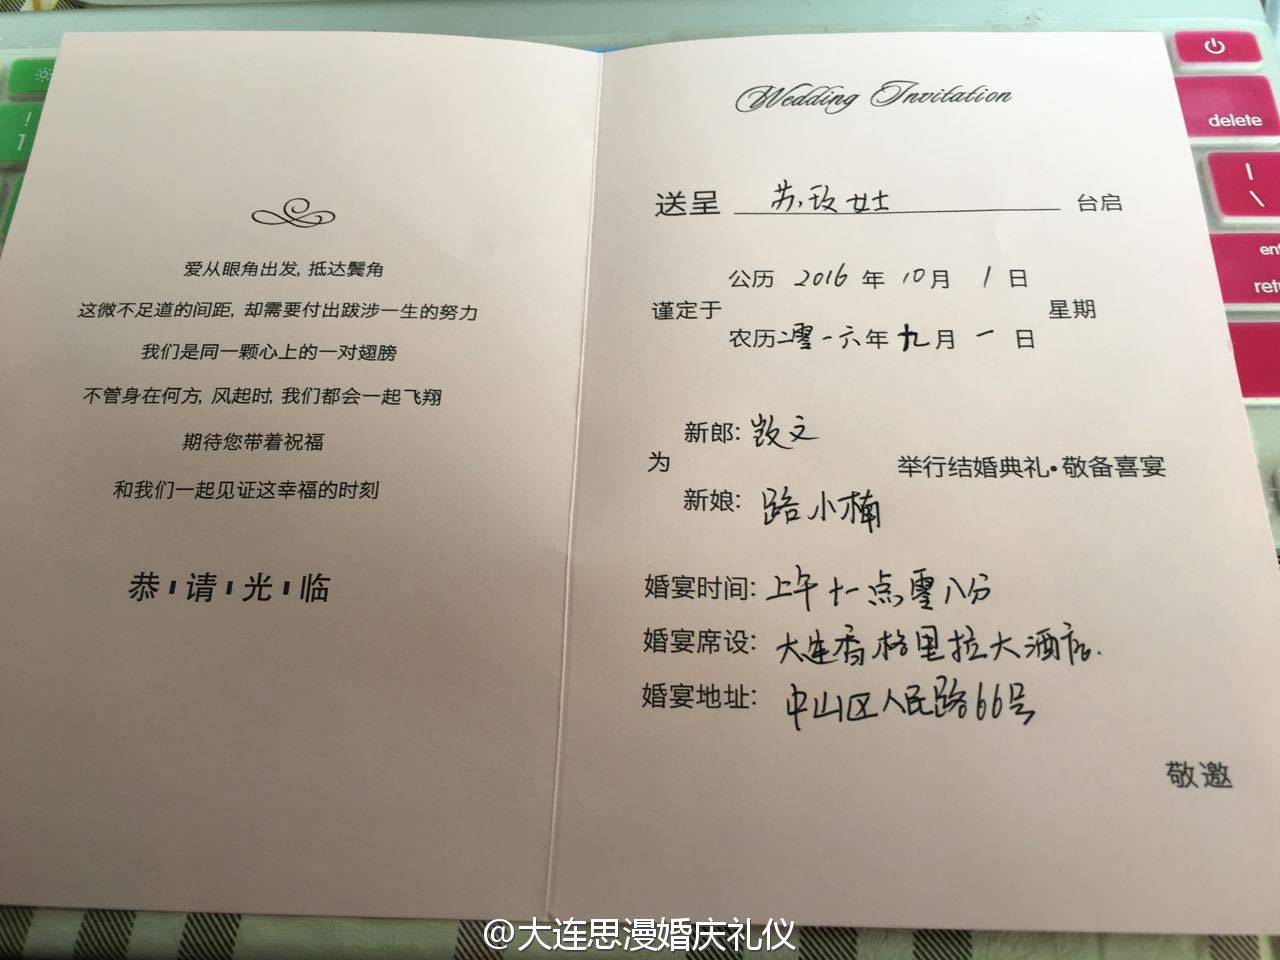 爱从眼角出发, 抵达鬓角
这微不足道的间距, 却需要付出跋涉一生的努力
我们是同一颗心上的一对翅膀
不管身在何方, 风起时, 我们都会一起飞翔
期待您带着祝福
和我们一起见证这幸福的时刻
恭 请 光 临
Wedding Invitation
送呈 苏玫女士 台启
公历 2016 年 10 月 1 日
谨定于 星期
农历 二零一六 年 九 月 一 日
新郎: 文
为 举行结婚典礼•敬备喜宴
新娘: 路小楠
婚宴时间: 上午十一点零八分
婚宴席设: 大连香格里拉大酒店.
婚宴地址: 中山区人民路66号
敬邀
delete
|
\
@大连思漫婚庆礼仪